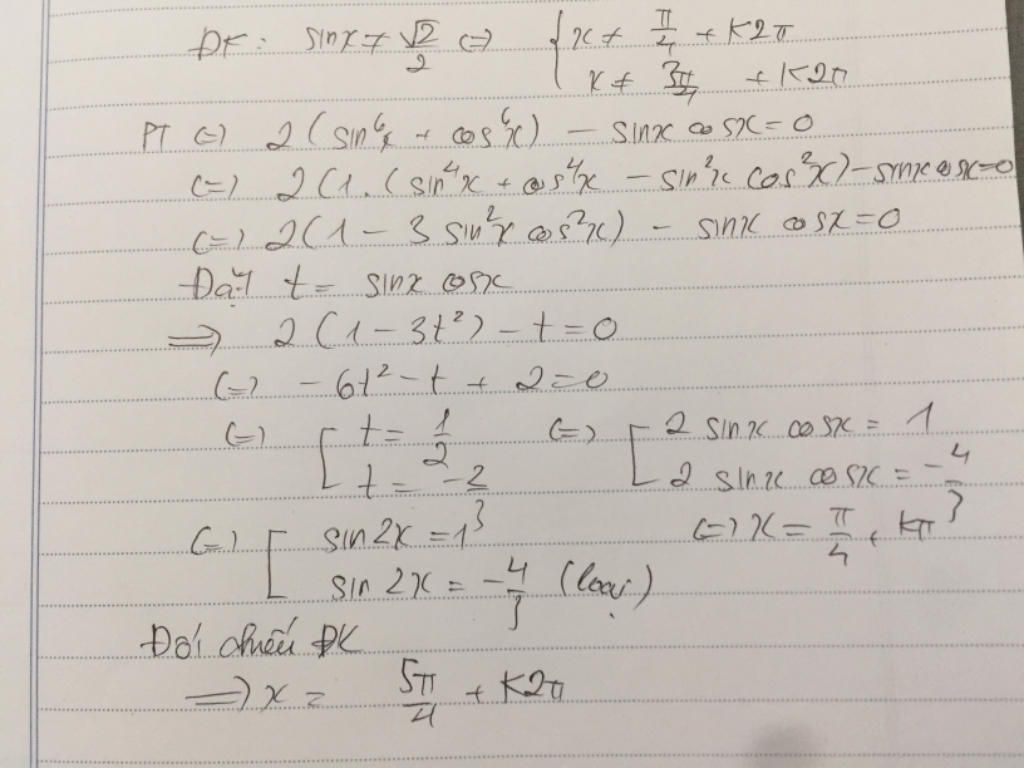 ĐK: sinx ≠ √2/2 <=> { x ≠ π/4 + K2π
x ≠ 3π/4 + K2π
PT <=> 2(sin⁶x + cos⁶x) - sinx cosx = 0
<=> 2(1.(sin⁴x + cos⁴x - sin²x cos²x) - sinx cosx = 0
<=> 2(1 - 3 sin²x cos²x) - sinx cosx = 0
Đặt t = sinx cosx
=> 2(1 - 3t²) - t = 0
<=> -6t² - t + 2 = 0
<=> [ t = 1/2 <=> [ 2 sinx cosx = 1
t = -2/3 2 sinx cosx = -4/3
<=> [ sin2x = 1 <=> x = π/4 + kπ
sin2x = -4/3 (loại)
Đối chiếu ĐK
=> x = 5π/4 + K2π